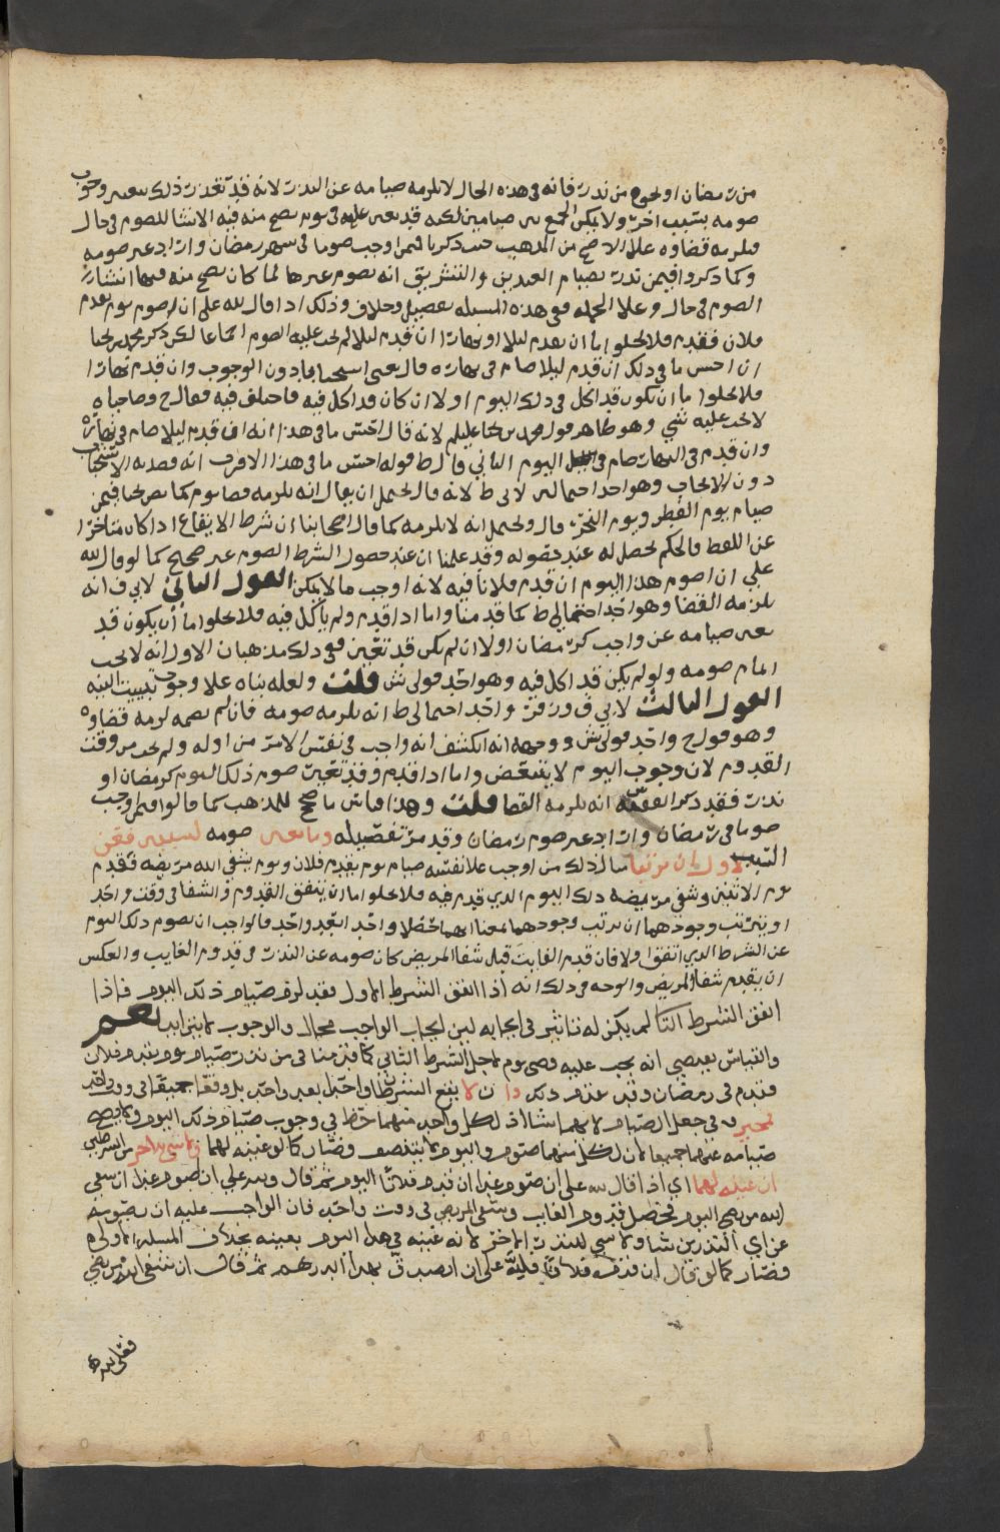 من رمضان او نحوه من نذر فانه في هذه الحال لا يلزمه صيامه عن النذر لانه قد تعذر ذلك بتعين وجوب
صومه بسبب اخر ولا يمكن الجمع بين صيامين لكنه قد تعين عليه في يوم يصح منه فيه الانشا للصوم في حال
فيلزمه قضاوه على الاصح من المذهب حيث ذكروا فيمن اوجب صوما في شهر رمضان واراد غير صومه
وكما ذكروا فيمن نذر بصيام العيدين والتشريق انه يصوم غيرها لما كان يصح منه فيها انشا
الصوم في حال وعلى الجمله ففي هذه المسئله تفصيل وخلاف وذلك اذا قال لله علي ان اصوم يوم يقدم
فلان فقدم فلا يخلوا اما ان يقدم ليلا او نهارا ان قدم ليلا لم يجب عليه الصوم اجماعا لكن ذكر محمد بن يحيا
ان احسن ما في ذلك ان قدم ليلا صام في نهاره قال يعني استحبابا دون الوجوب وان قدم نهارا
فلا يخلوا اما ان يكون قد اكل في ذلك اليوم اولا ان كان قد اكل فيه فاختلف فيه فقال ح وصاحباه
لا يجب عليه شي وهو ظاهر قول محمد بن يحيا عليلم لانه قال احسن ما في هذا انه ان قدم ليلا صام في نهاره
وان قدم في النهار صام في اليوم الثاني قال ط قوله احسن ما في هذا الاقرب انه قصد به الاستحباب
دون الايجاب وهو احد احتمالين لابي ط لانه قال يحتمل ان يقال انه يلزمه قضا يوم كما نص يحيا فيمن
صيام يوم الفطر ويوم النحر قال ويحتمل انه لا يلزمه كما قال اصحابنا ان شرط الايقاع اذا كان متاخرا
عن اللفظ فالحكم يحصل له عند حصوله وقد علمنا ان عند حصول الشرط الصوم غير صحيح كما لو قال لله
علي ان اصوم هذا اليوم ان قدم فلانا فيه لانه اوجب ما لا يمكن القول الثاني لابي ف انه
يلزمه القضا وهو احد احتمالي ط كما قدمنا واما اذا قدم ولم ياكل فيه فلا يخلوا اما أن يكون قد
تعين صيامه عن واجب كرمضان اولا ان لم يكن قد تعين ففي ذلك مذهبان الاول انه لا يجب
اتمام صومه ولو لم يكن قد اكل فيه وهو احد قولي ش قلت ولعله بناه على وجوب تبييت النيه
القول الثالث لابي ف وزفر واحد احتمالي ط انه يلزمه صومه فان لم يصمه لزمه قضاوه
وهو قول ح واحد قولي ش ووجهه انه انكشف انه واجب في نفس الامر من اوله ولم يجد من وقت
القدوم لان وجوب اليوم لا يتبعض واما اذا قدم وقد تعين صوم ذلك اليوم كرمضان او
نذر فقد ذكر الفقيه س انه يلزمه القضا قلت وهذا قياس ما صح للمذهب كما قالوا فيمن اوجب
صوما في رمضان واراد غير صوم رمضان وقد مر تفصيله وما تعين صومه لسببين فعن
السبب الاول ان ترتبا مثال ذلك من اوجب على نفسه صيام يوم يقدم فلان ويوم يشفي الله مريضه فقدم
يوم الاثنين وشفي مريضه ذلك اليوم الذي قدم فيه فلا يخلوا اما ان يتفق القدوم والشفا في وقت واحد
او يترتب وجودهما ان ترتب وجودهما بمعنا انهما حصلا واحدا بعد واحد فالواجب ان يصوم ذلك اليوم
عن الشرط الذي اتفق اولا فان قدم الغايب قبل شفا المريض كان صومه عن النذر في قدوم الغايب والعكس
ان يقدم شفا المريض والوجه في ذلك انه اذا اتفق الشرط الاول فقد لزم صيام ذلك اليوم فاذا
اتفق الشرط الثاني لم يكن له تاثير في ايجابه لان ايجاب الواجب محال والوجوب لا يتزايد نعم
والقياس يقتضي انه يجب عليه قضى يوم لاجل الشرط الثاني كما قدمنا في من نذر صيام يوم يقدم فلان
فقدم في رمضان وقد تقدم ذلك وان لا يقع الشرطان واحدا بعد واحد بل وقعا جميعا في وقت واحد
تخير في جعل الصيام لايهما شا اذ لكل واحد منهما حظ في وجوب صيام ذلك اليوم ولا يصح
صيامه عنهما جميعا لان لكل منهما صوم واليوم لا يتنصف وصار كما لو عينه لهما ولا شي للاخر من الشرطين
ان عينه لهما اي اذا قال لله علي ان صوم غدا ان قدم فلانا اليوم ثم قال ولله علي ان صوم غدا ان شفي
الله مريضي اليوم فحصل قدوم الغايب وشفي المريض في وقت واحد فان الواجب عليه ان يصومه
عن اي النذرين شا ولا شي للنذر الاخر لانه عينه في هذا اليوم بعينه بخلاف المسئله الاولى
وصار كما لو قال ان قدم فلانا فلله علي ان اتصدق بهذا الدرهم ثم قال ان شفى الله مريضي
فعلي لله